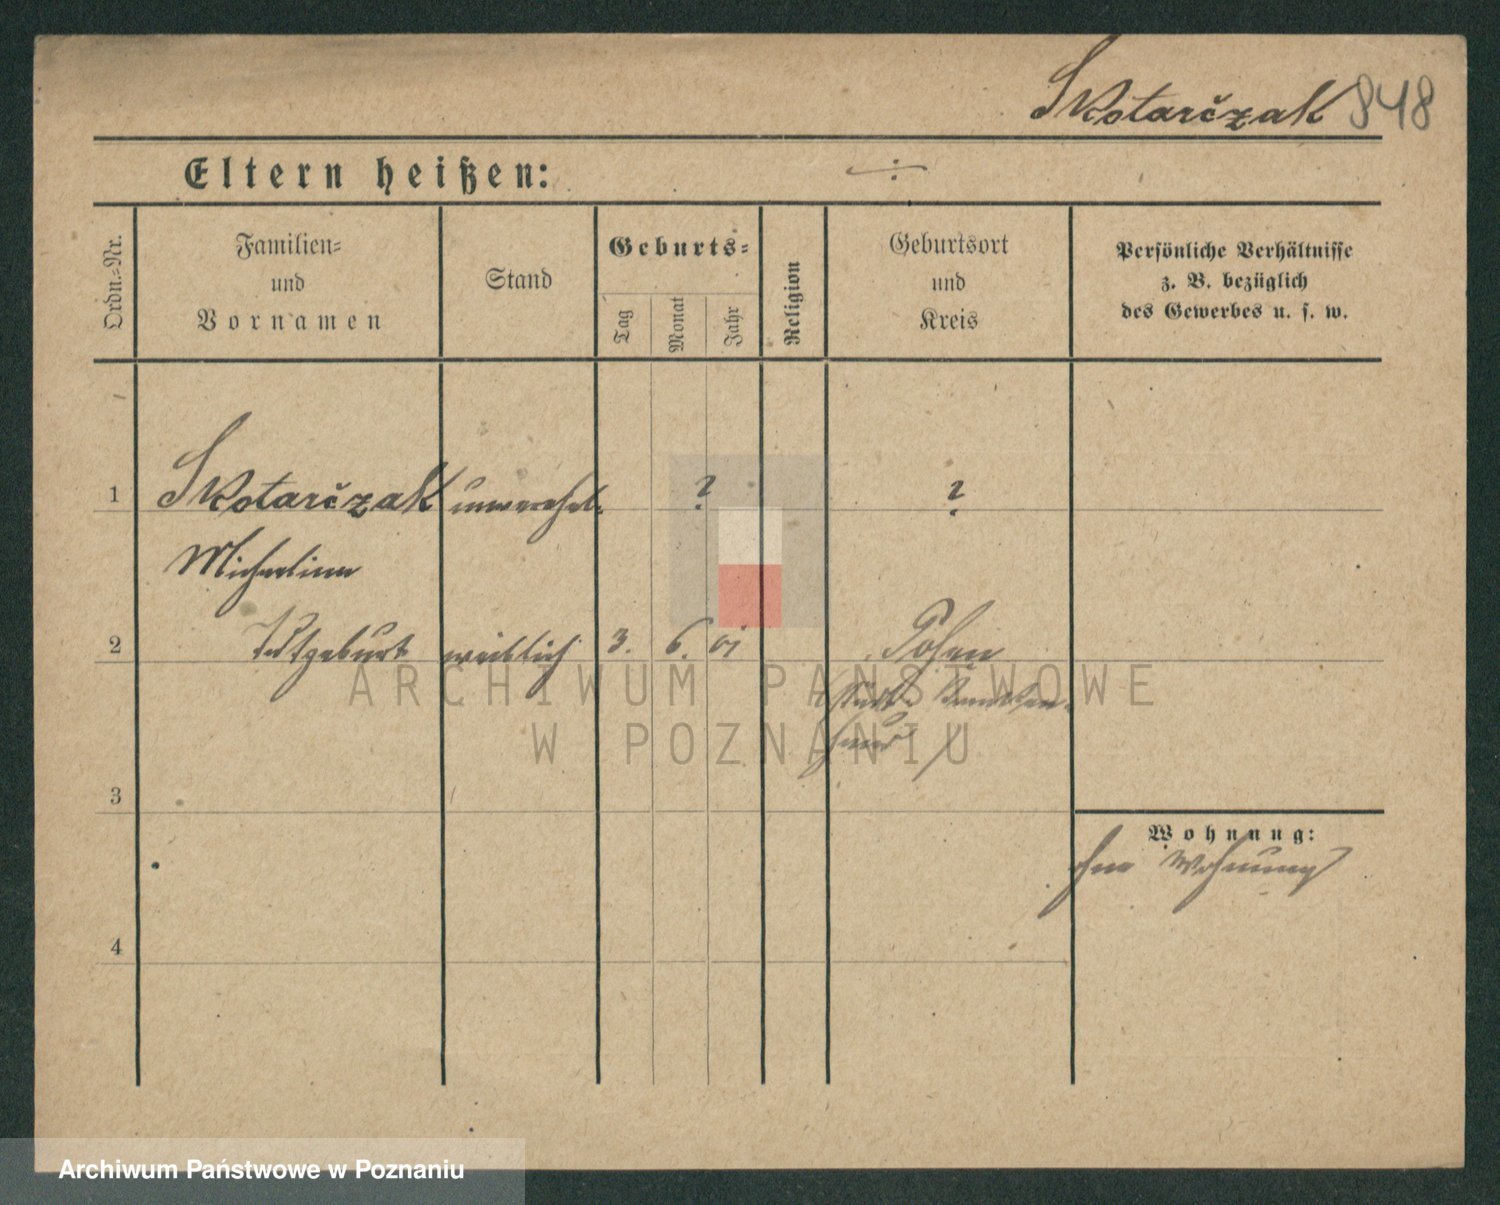 Skotarčzak 848
Eltern heißen: ÷
Ordn.-Nr.
Familien-
und
Vornamen
Stand
Geburts-
Tag
Monat
Jahr
Religion
Geburtsort
und
Kreis
Persönliche Verhältnisse
z. B. bezüglich
des Gewerbes u. s. w.
1 Skotarčzak unverehel. ? ?
Michaline
2 Todtgeburt weiblich 3. 6. 01 Posen
Stadt-Kranken-
haus
3
Wohnung:
ohne Wohnung
4
ARCHIWUM PAŃSTWOWE
W POZNANIU
Archiwum Państwowe w Poznaniu